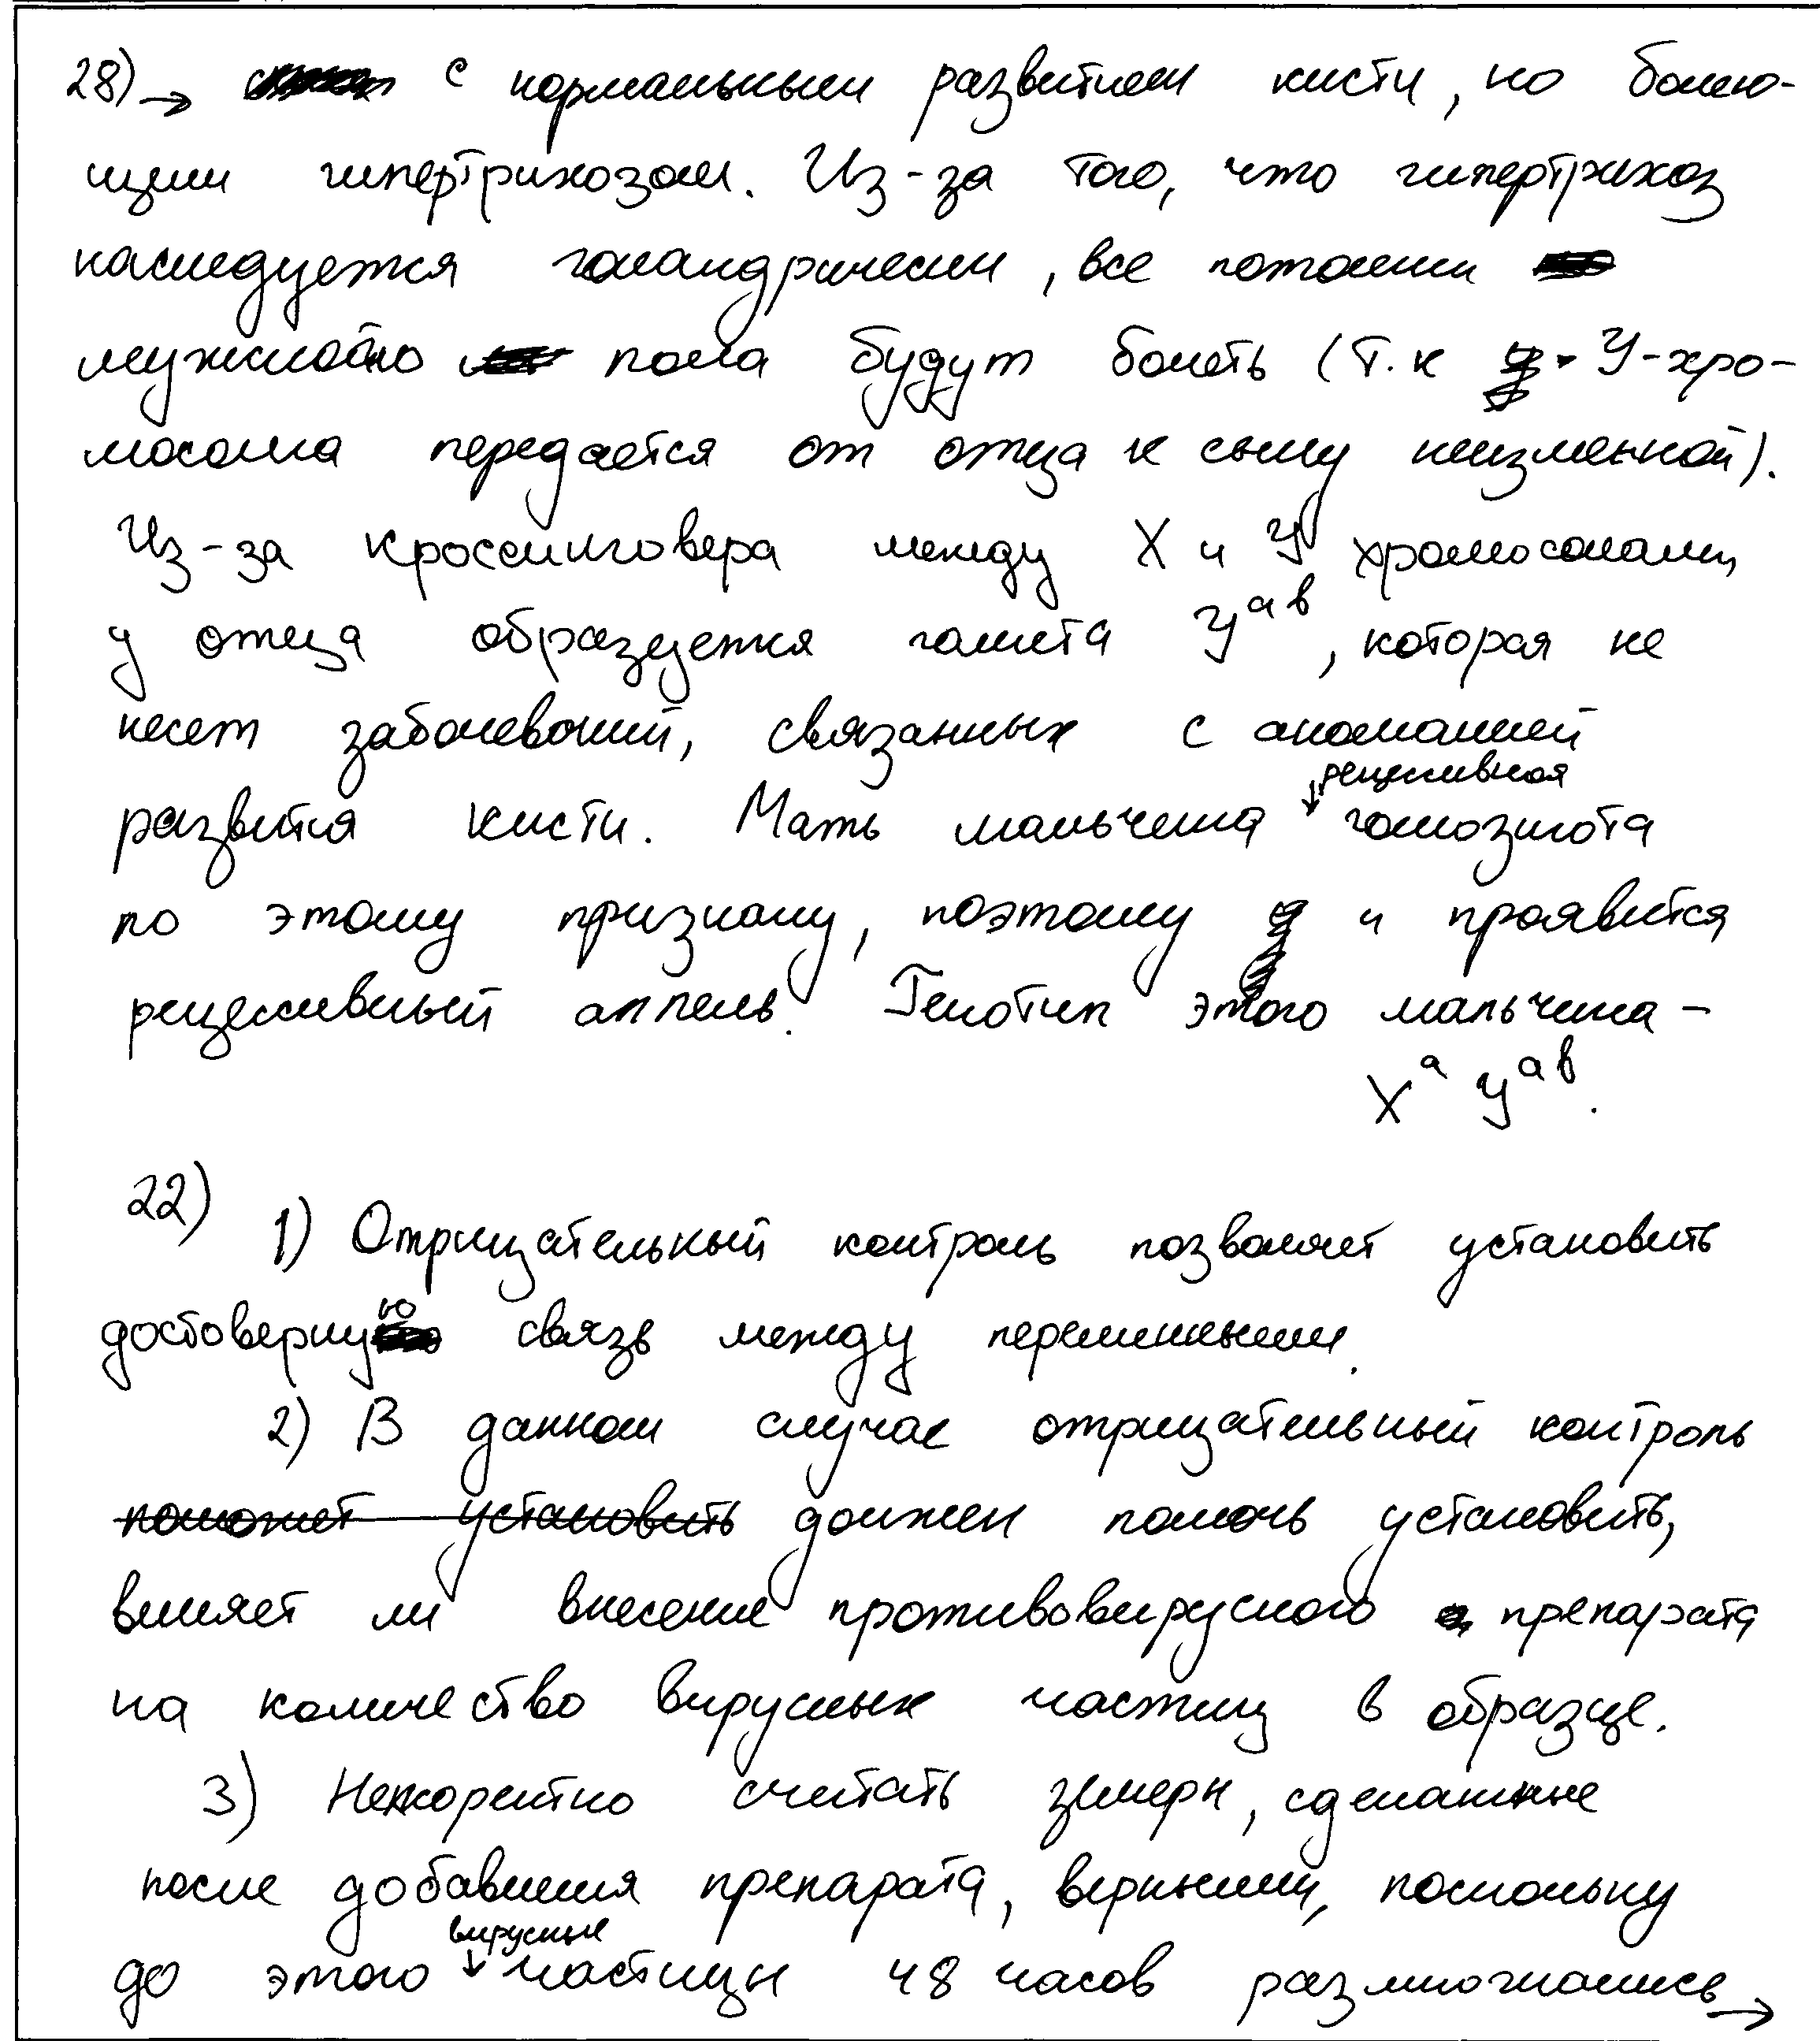 28)→ с нормальным развитием кисти, но болею-
щим гипертрихозом. Из-за того, что гипертрихоз
наследуется голандрически, все потомки
мужского пола будут болеть (т.к У-хро-
мосома передается от отца к сыну неизменной).
Из-за кроссинговера между Х и У хромосомами
у отца образуется гамета У^ав, которая не
несет заболеваний, связанных с аномалией
рецессивная
развития кисти. Мать мальчика ↓ гомозигота
по этому признаку, поэтому и проявится
рецессивный аллель. Генотип этого мальчика –
Х^а У^ав.
22)
1) Отрицательный контроль позволяет установить
достоверную связь между переменными.
2) В данном случае отрицательный контроль
поможет установить должен помочь установить,
влияет ли внесение противовирусного препарата
на количество вирусных частиц в образце.
3) Некоректно считать замеры, сделанные
после добавления препарата, верными, поскольку
вирусные
до этого ↓ частицы 48 часов размножались→